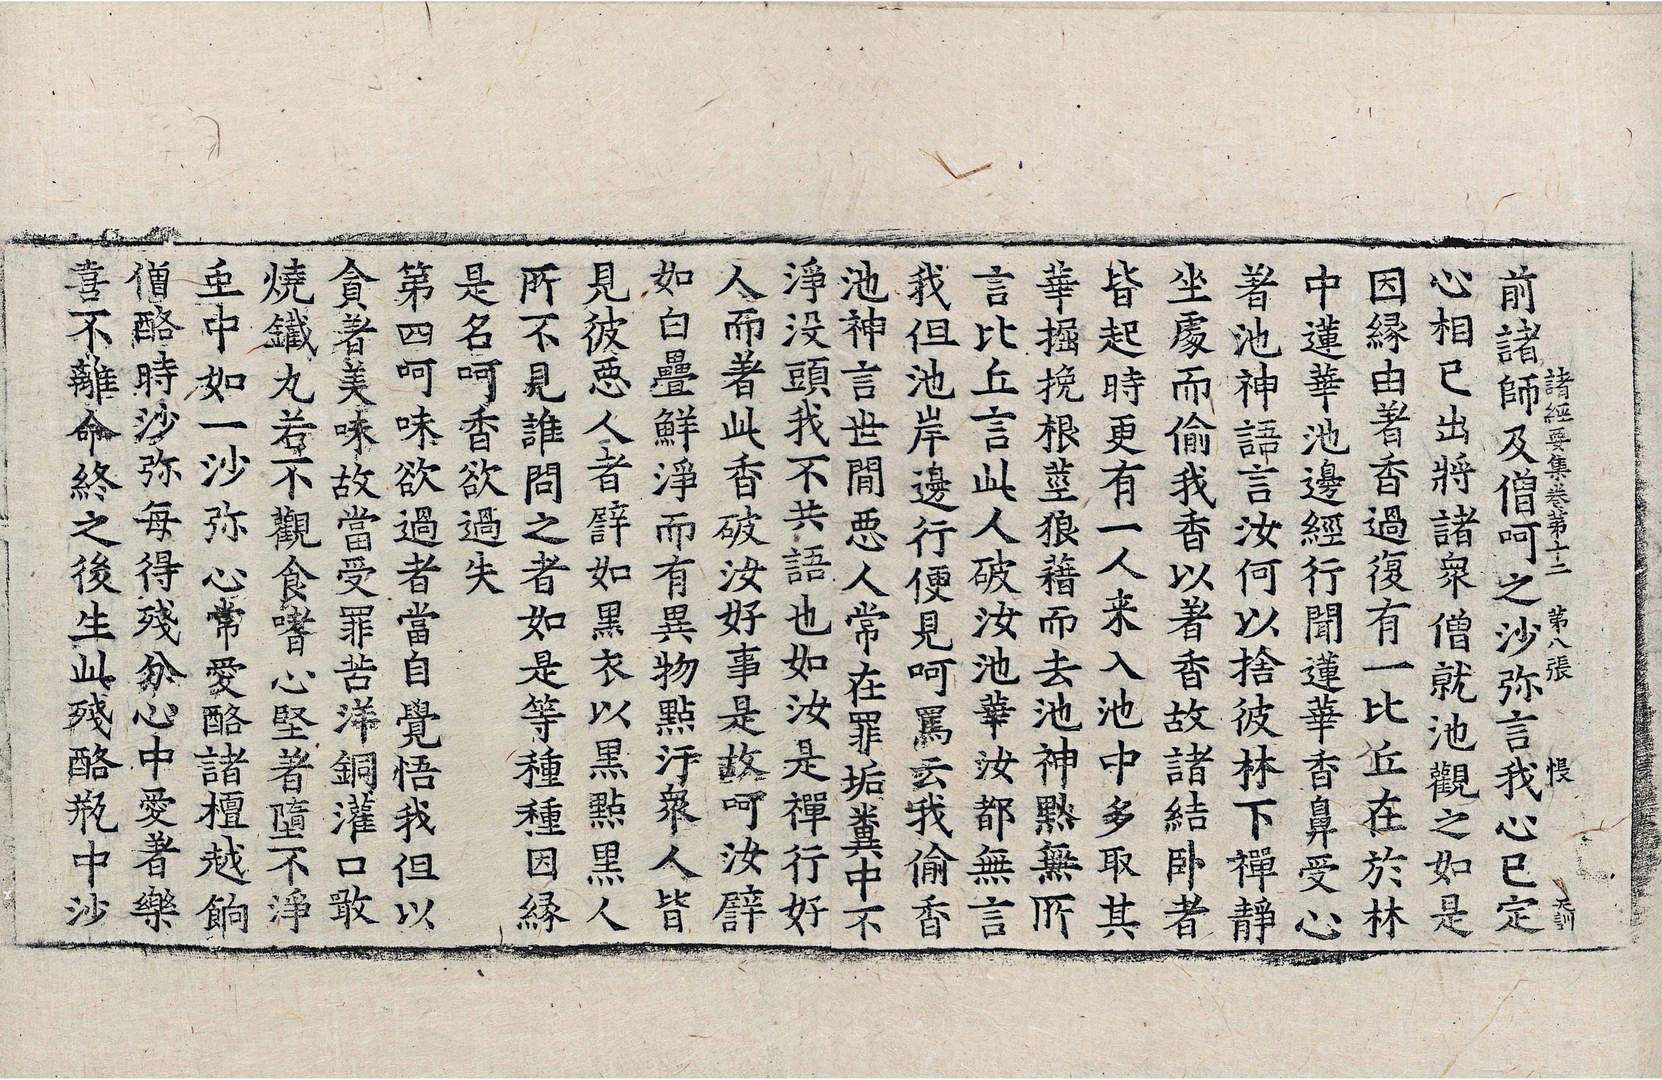 諸經要集卷第十三 第八張 悵
前諸師及僧呵之沙弥言我心已定
心相已出將諸衆僧就池觀之如是
因縁由著香過復有一比丘在於林
中蓮華池邊經行聞蓮華香鼻受心
著池神語言汝何以捨彼林下禪靜
坐處而偷我香以著香故諸結卧者
皆起時更有一人来入池中多取其
華掘挽根莖狼藉而去池神黙無所
言比丘言此人破汝池華汝都無言
我但池岸邊行便見呵罵云我偷香
池神言世間惡人常在罪垢糞中不
淨没頭我不共語也如汝是禪行好
人而著此香破汝好事是故呵汝譬
如白疊鮮淨而有異物點汙衆人皆
見彼惡人者譬如黑衣以黑點黑人
所不見誰問之者如是等種種因縁
是名呵香欲過失
第四呵味欲過者當自覺悟我但以
貪著美味故當受罪苦洋銅灌口敢
燒鐵丸若不觀食嗜心堅著墮不淨
虫中如一沙弥心常愛酪諸檀越餉
僧酪時沙弥每得殘分心中愛著樂
喜不離命終之後生此殘酪瓶中沙